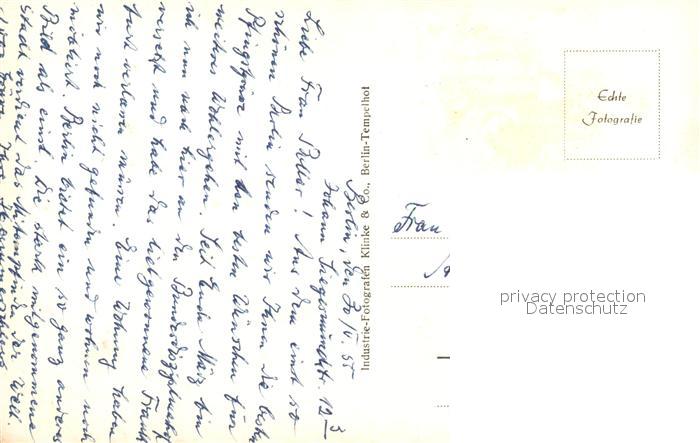 Berlin, den 30/V. 55
Johann Siegesmundstr. 12
Liebe Frau
! Aus dem einst so
schönen Berlin senden wir Ihnen die besten
Pfingstgrüße mit den besten Wünschen für
weiteres Wohlergehen. Seit Ende März bin
ich nun nach hier an den
versetzt und habe das liebgewonnene
verlassen müssen. Eine Wohnung haben
wir noch nicht gefunden und wohnen noch
möbliert. Berlin bietet ein so ganz anderes
Bild als einst. Die stark mitgenommene
Stadt verdient das Mitempfinden der Welt.
Industrie-Fotografen Klinke & Co., Berlin-Tempelhof
Echte
Fotografie
Frau
privacy protection
Datenschutz